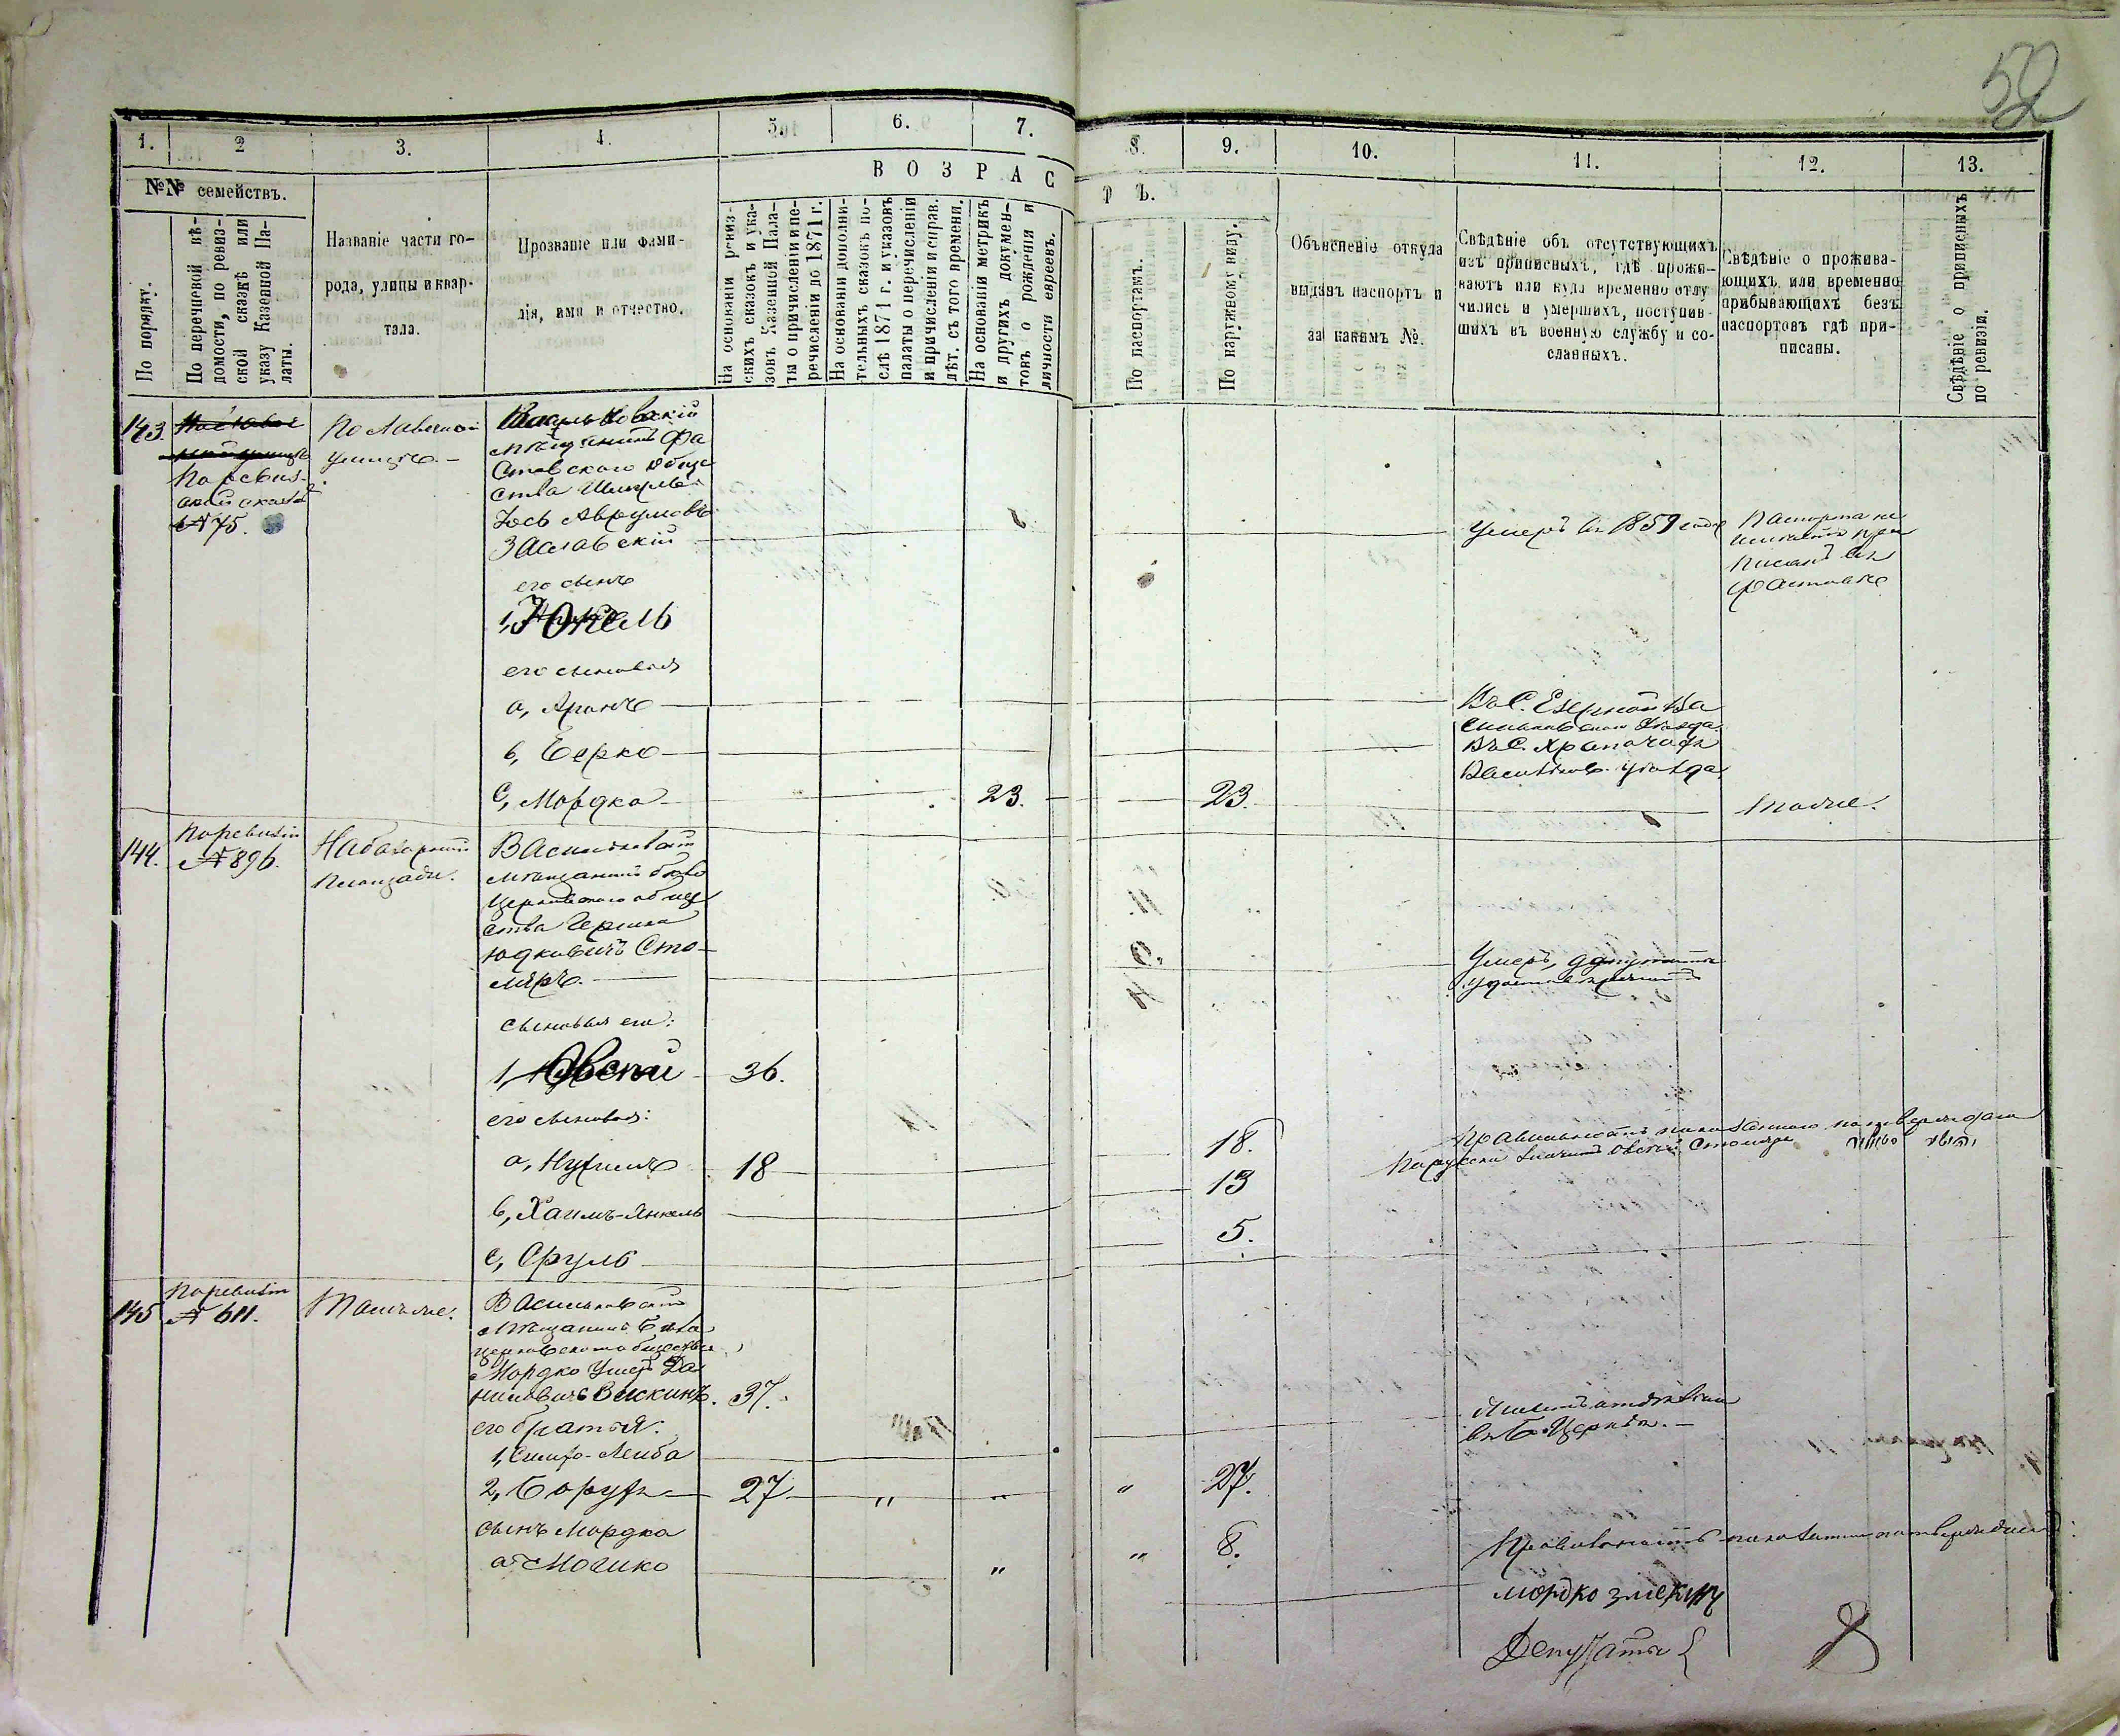 52
1. 2 3. 4. 5. 6. 7. 8. 9. 10. 11. 12. 13.
№№ семействъ.
По порядку.
По перечневой вѣ-
домости, по ревиз-
ской сказкѣ или
указу Казенной Па-
латы.
Названіе части го-
рода, улицы и квар-
тала.
Прозваніе или фами-
лія, имя и отчество.
ВОЗРАСТЪ.
На основаніи ревиз-
скихъ сказокъ и ука-
зовъ Казенной Пала-
ты о причисленіи и пе-
речисленіи до 1871 г.
На основаніи дополни-
тельныхъ сказокъ по-
слѣ 1871 г. и указовъ
палаты о перечисленіи
и причисленіи и справ.
лѣт. съ того времени.
На основаніи метрикъ
и другихъ докумен-
товъ о рожденіи и
личности евреевъ.
По паспортамъ.
По наружному виду.
Объясненіе откуда
выданъ паспортъ и
за какимъ №.
Свѣдѣніе объ отсутствующихъ
изъ приписныхъ, гдѣ прожи-
ваютъ или куда временно отлу
чились и умершихъ, поступив-
шихъ въ военную службу и со-
сланныхъ.
Свѣдѣніе о прожива-
ющихъ или временно
прибывающихъ безъ
паспортовъ гдѣ при-
писаны.
Свѣдѣніе о приписныхъ
по ревизіи.
143.
По ревиз-
ской сказкѣ
№ 75.
улицѣ.
Васильковскій
мѣщанинъ Фа
стовского обще
ства Шмуль
Іось Аврумовъ
Заславскій
Умеръ въ 1859 году
Паспорта не
имѣетъ при
писанъ въ
Фастовѣ
его сынъ
1, Юкель
его сыновья
а, Аронъ
Въ С. Езерной Ва
сильковскаго уѣзда
в, Берко
Въ С.
Васильков. уѣзда
с, Мордко 23. 23.
тоже.
144.
По ревизіи
№ 896.
На базарной
площади.
Васильковскій
мѣщанинъ Бѣло
церковскаго обще
ства Гершко
Юдковичъ Сто-
ляръ.
Умеръ,
сыновья его:
1, Овсей 36.
его сыновья:
а, Нухимъ 18 18.
в, Хаимъ-Янкель 13
с, Сруль 5.
Правильность показанного подтверждаю
Овсей Столяръ
145
По ревизіи
№ 611.
Тамъ же.
Васильковскій
мѣщанинъ Бѣло
церковского общества
Мордко Умеръ Да
ниловичъ Зискинъ. 37.
его братья:
1, Симха-Лейба
въ Б. Церкви.
2, Борухъ 27 " " " 27.
сынъ Мордка
а, Мошко " " 8.
Правильность показанія подтверждаетъ:
мордко зискинъ
Депутаты {